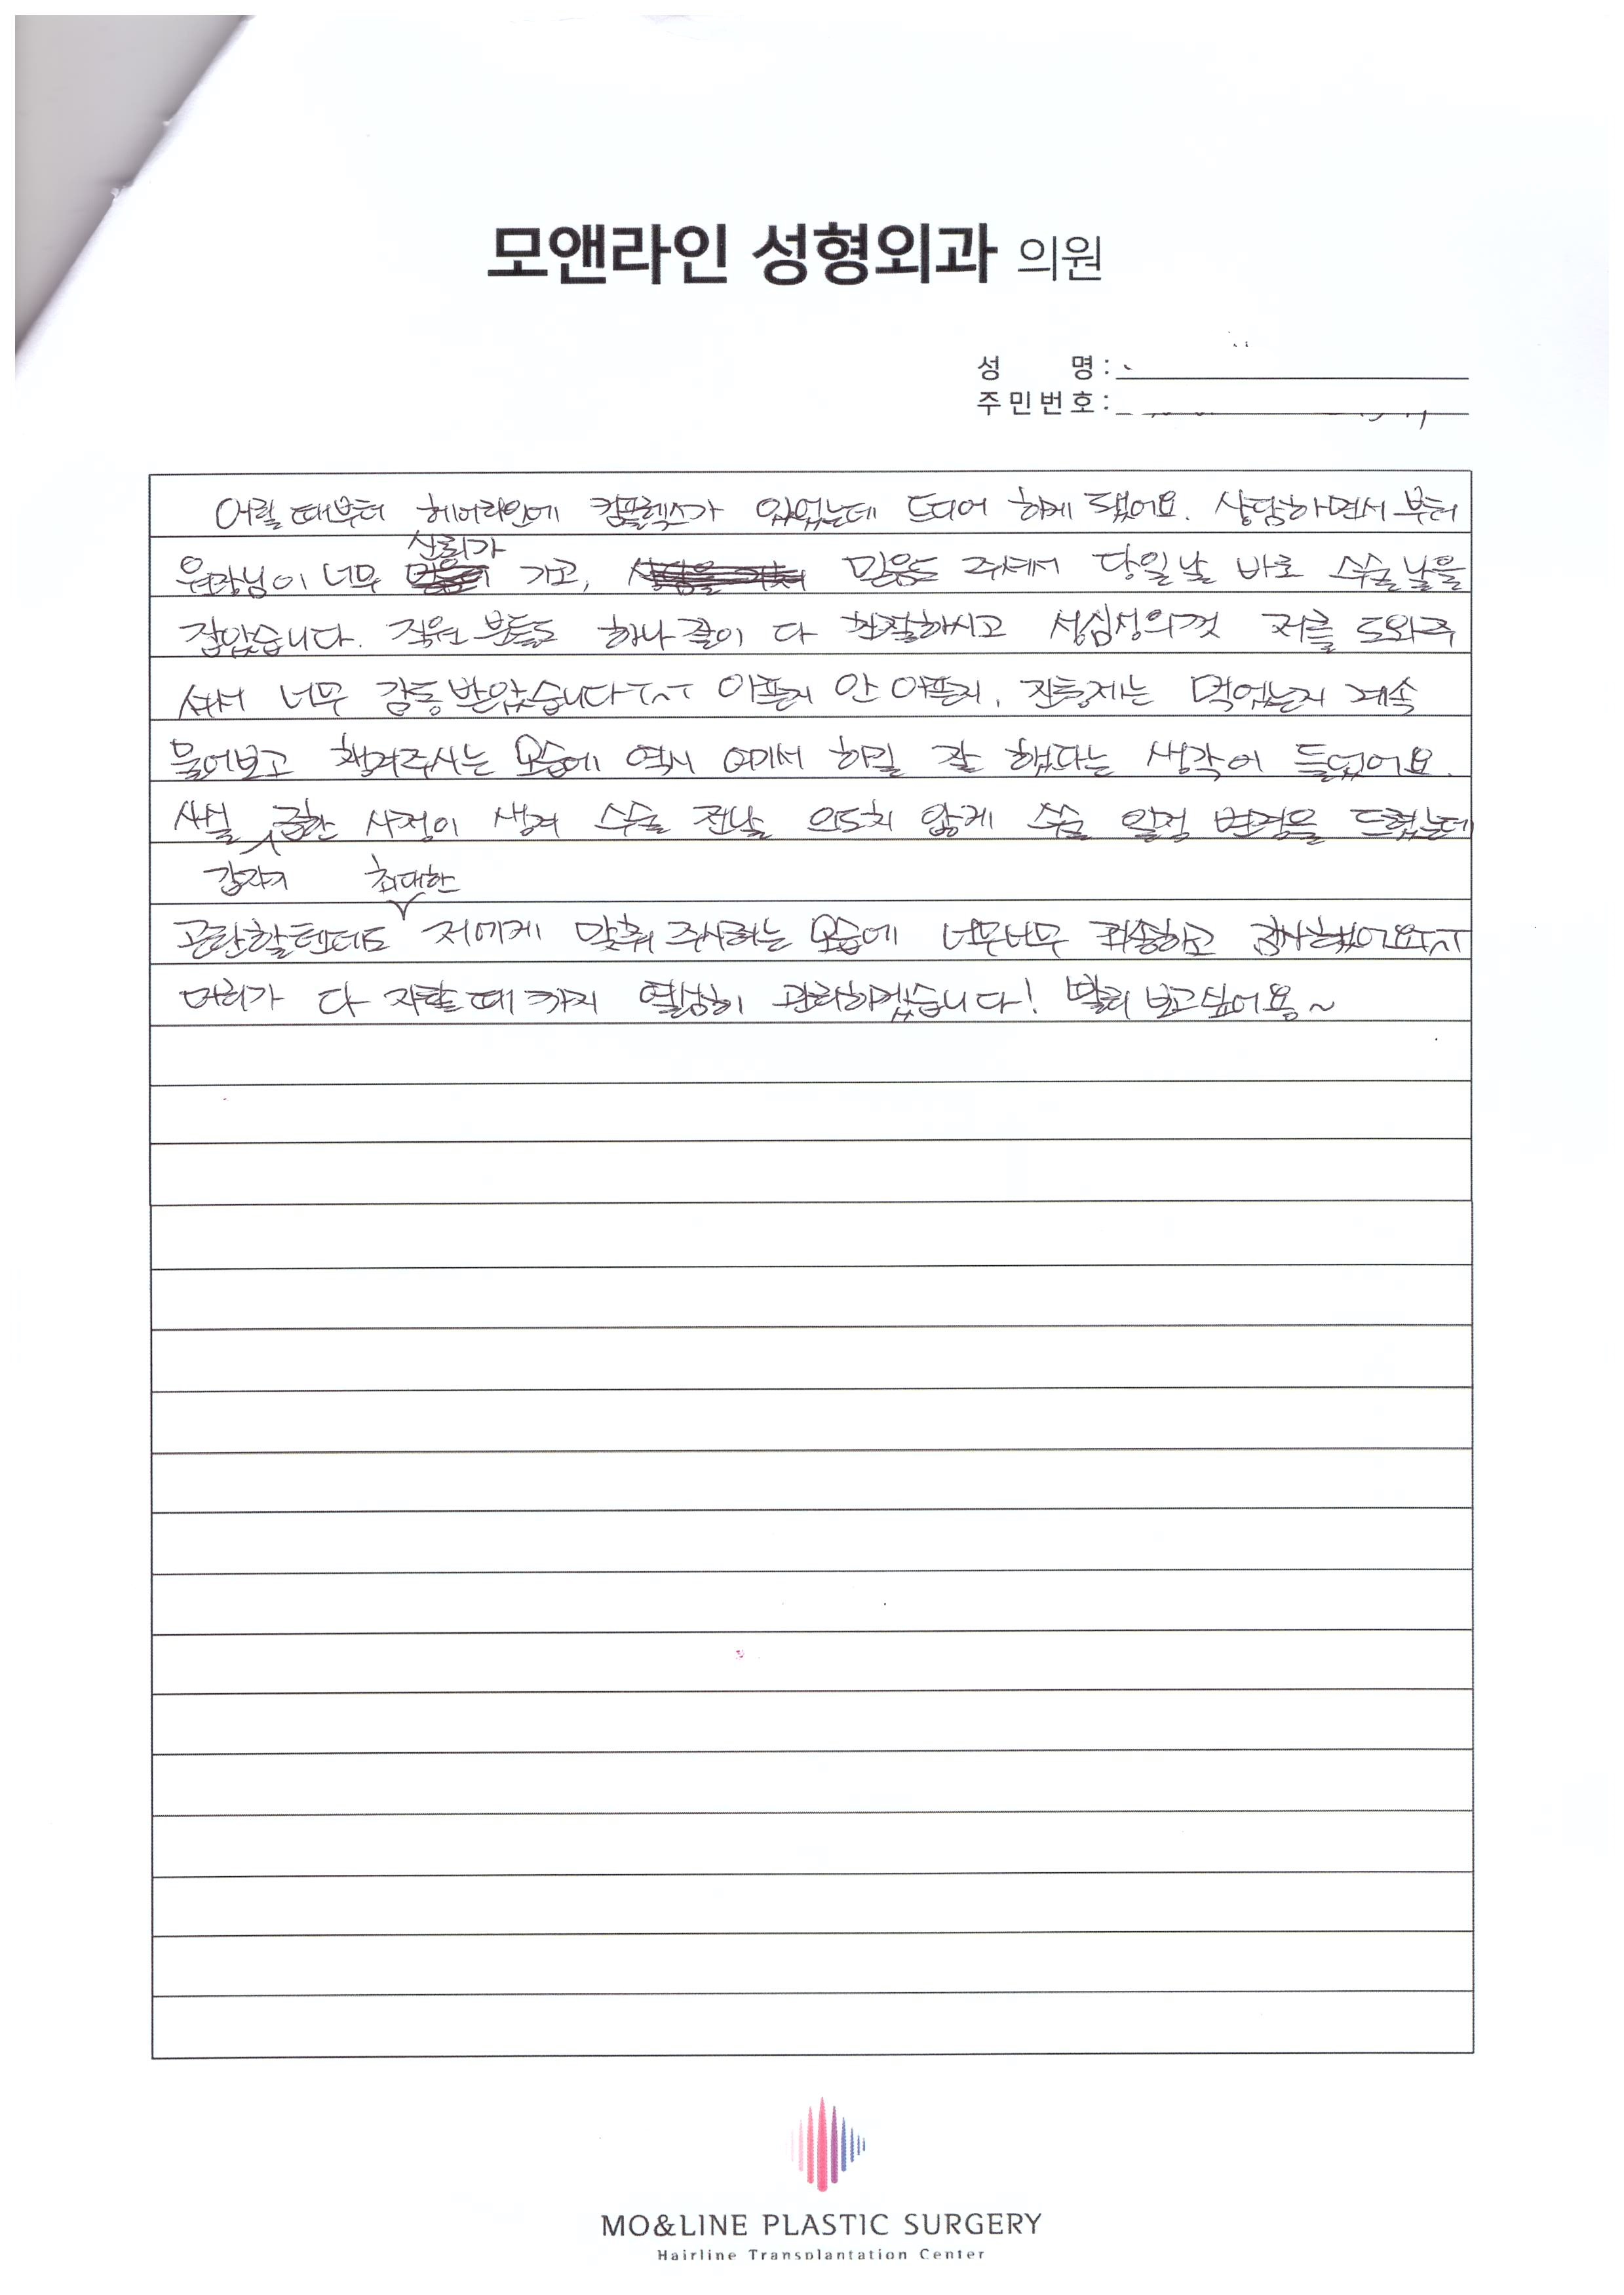 모앤라인 성형외과 의원
성 명 :
주민번호 :
어릴 때부터 헤어라인에 컴플렉스가 있었는데 드디어 하게 됐어요. 상담하면서 부터
신뢰가
원장님이 너무 가고, 믿음도 주셔서 당일날 바로 수술날을
잡았습니다. 직원 분들도 하나 같이 다 친절하시고 성심성의껏 저를 도와주
셔서 너무 감동받았습니다ㅜㅅㅜ 아픈지 안 아픈지, 진통제는 먹었는지 계속
물어보고 챙겨주시는 모습에 역시 여기서 하길 잘 했다는 생각이 들었어요.
사실 급한 사정이 생겨 수술 전날 의도치 않게 수술 일정 변경을 드렸는데
갑자기 최대한
곤란할텐데도 저에게 맞춰 주시려는 모습에 너무너무 죄송하고 감사했어요ㅜㅅㅜ
머리가 다 자랄 때 까지 열심히 관리하겠습니다! 빨리 보고싶어용~
MO&LINE PLASTIC SURGERY
Hairline Transplantation Center